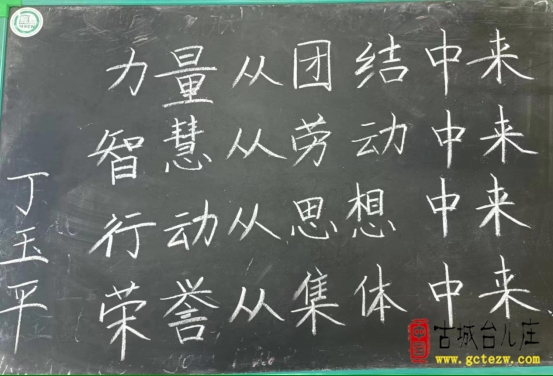 力量从团结中来
智慧从劳动中来
行动从思想中来
荣誉从集体中来
丁玉平
古城台儿庄
www.gctezw.com